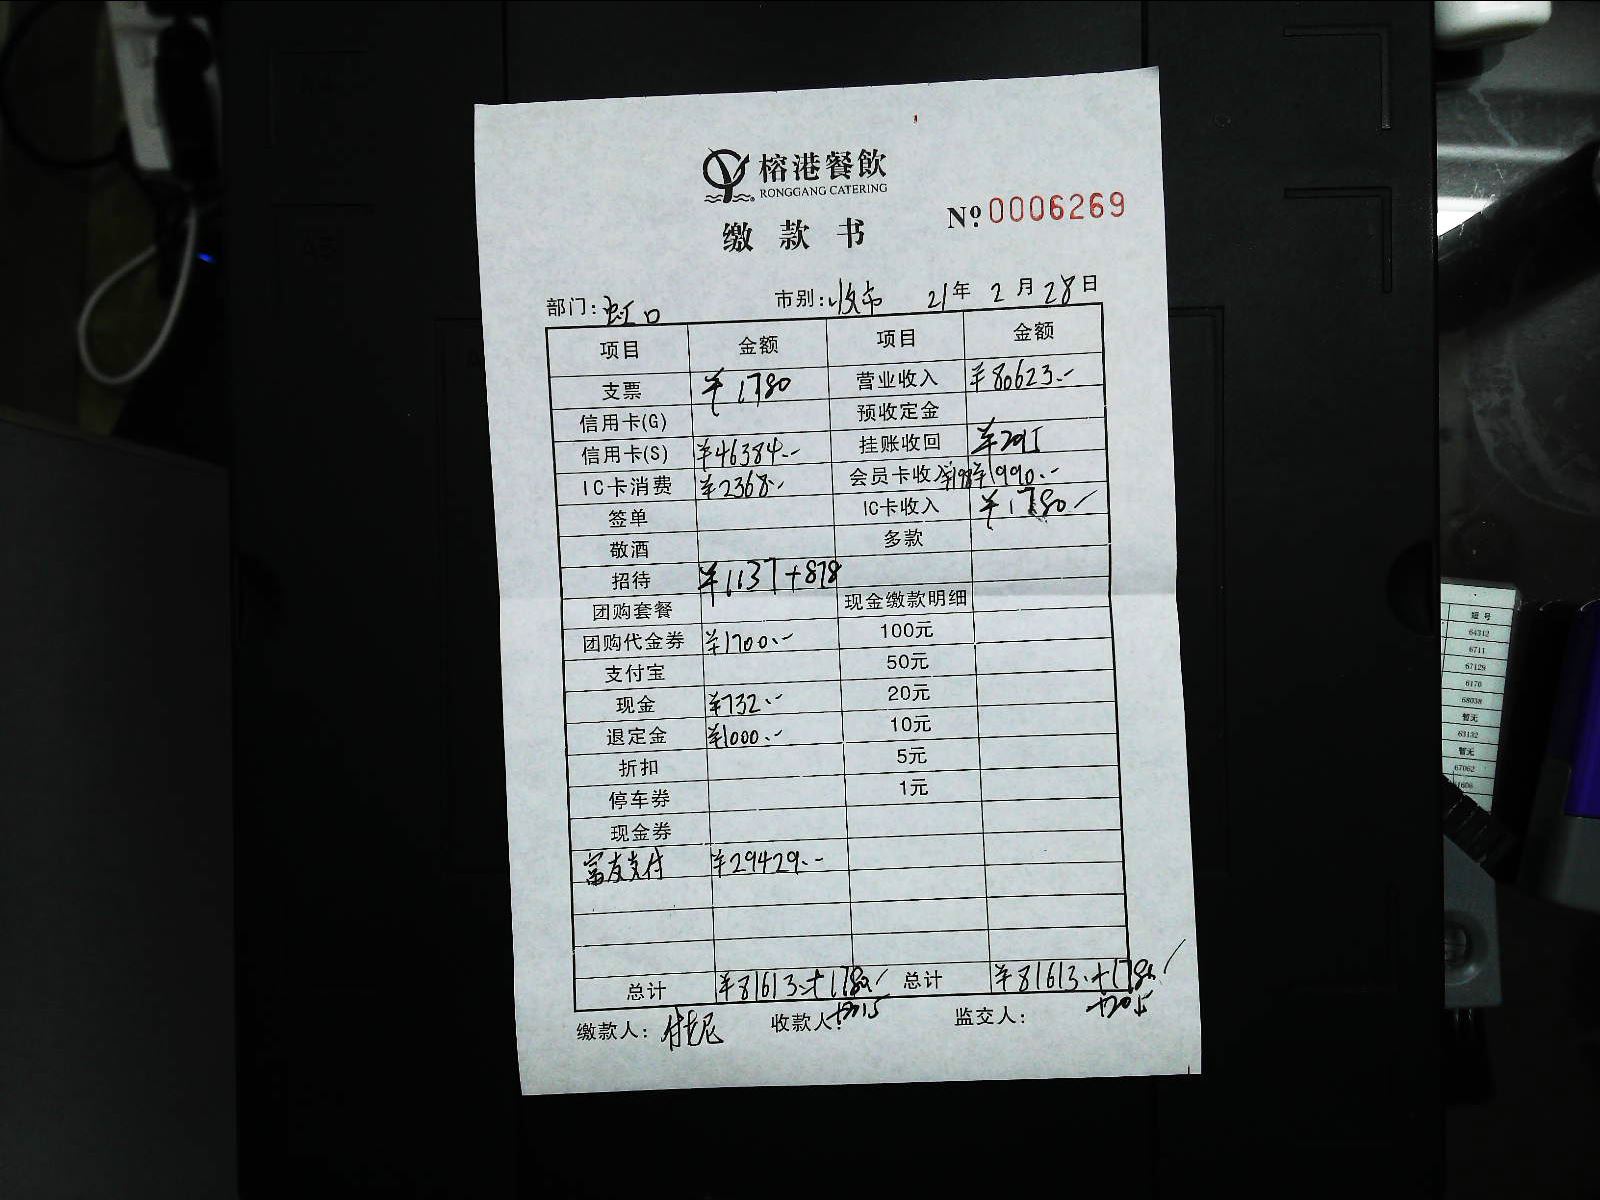 榕港餐飲
RONGGANG CATERING
缴款书 No: 0006269
部门: 虹口 市别: 收市 21年 2月 28日
项目 金额 项目 金额
支票 ¥1780 营业收入 ¥80623.-
信用卡(G) 预收定金
信用卡(S) ¥46384.- 挂账收回 ¥2015
IC卡消费 ¥2368.- 会员卡收入 ¥990.-
签单 IC卡收入 ¥1780/
敬酒 多款
招待 ¥1137+878
团购套餐 现金缴款明细
团购代金券 ¥1700.- 100元
支付宝 50元
现金 ¥732.- 20元
退定金 ¥1000.- 10元
折扣 5元
停车券 1元
现金券
富友支付 ¥29429.-
总计 ¥81613.+1780/ 总计 ¥81613.+1780/
+2015 +2015
缴款人: 收款人: 监交人:
短号
64312
6711
67129
6176
68038
暂无
63132
暂无
67062